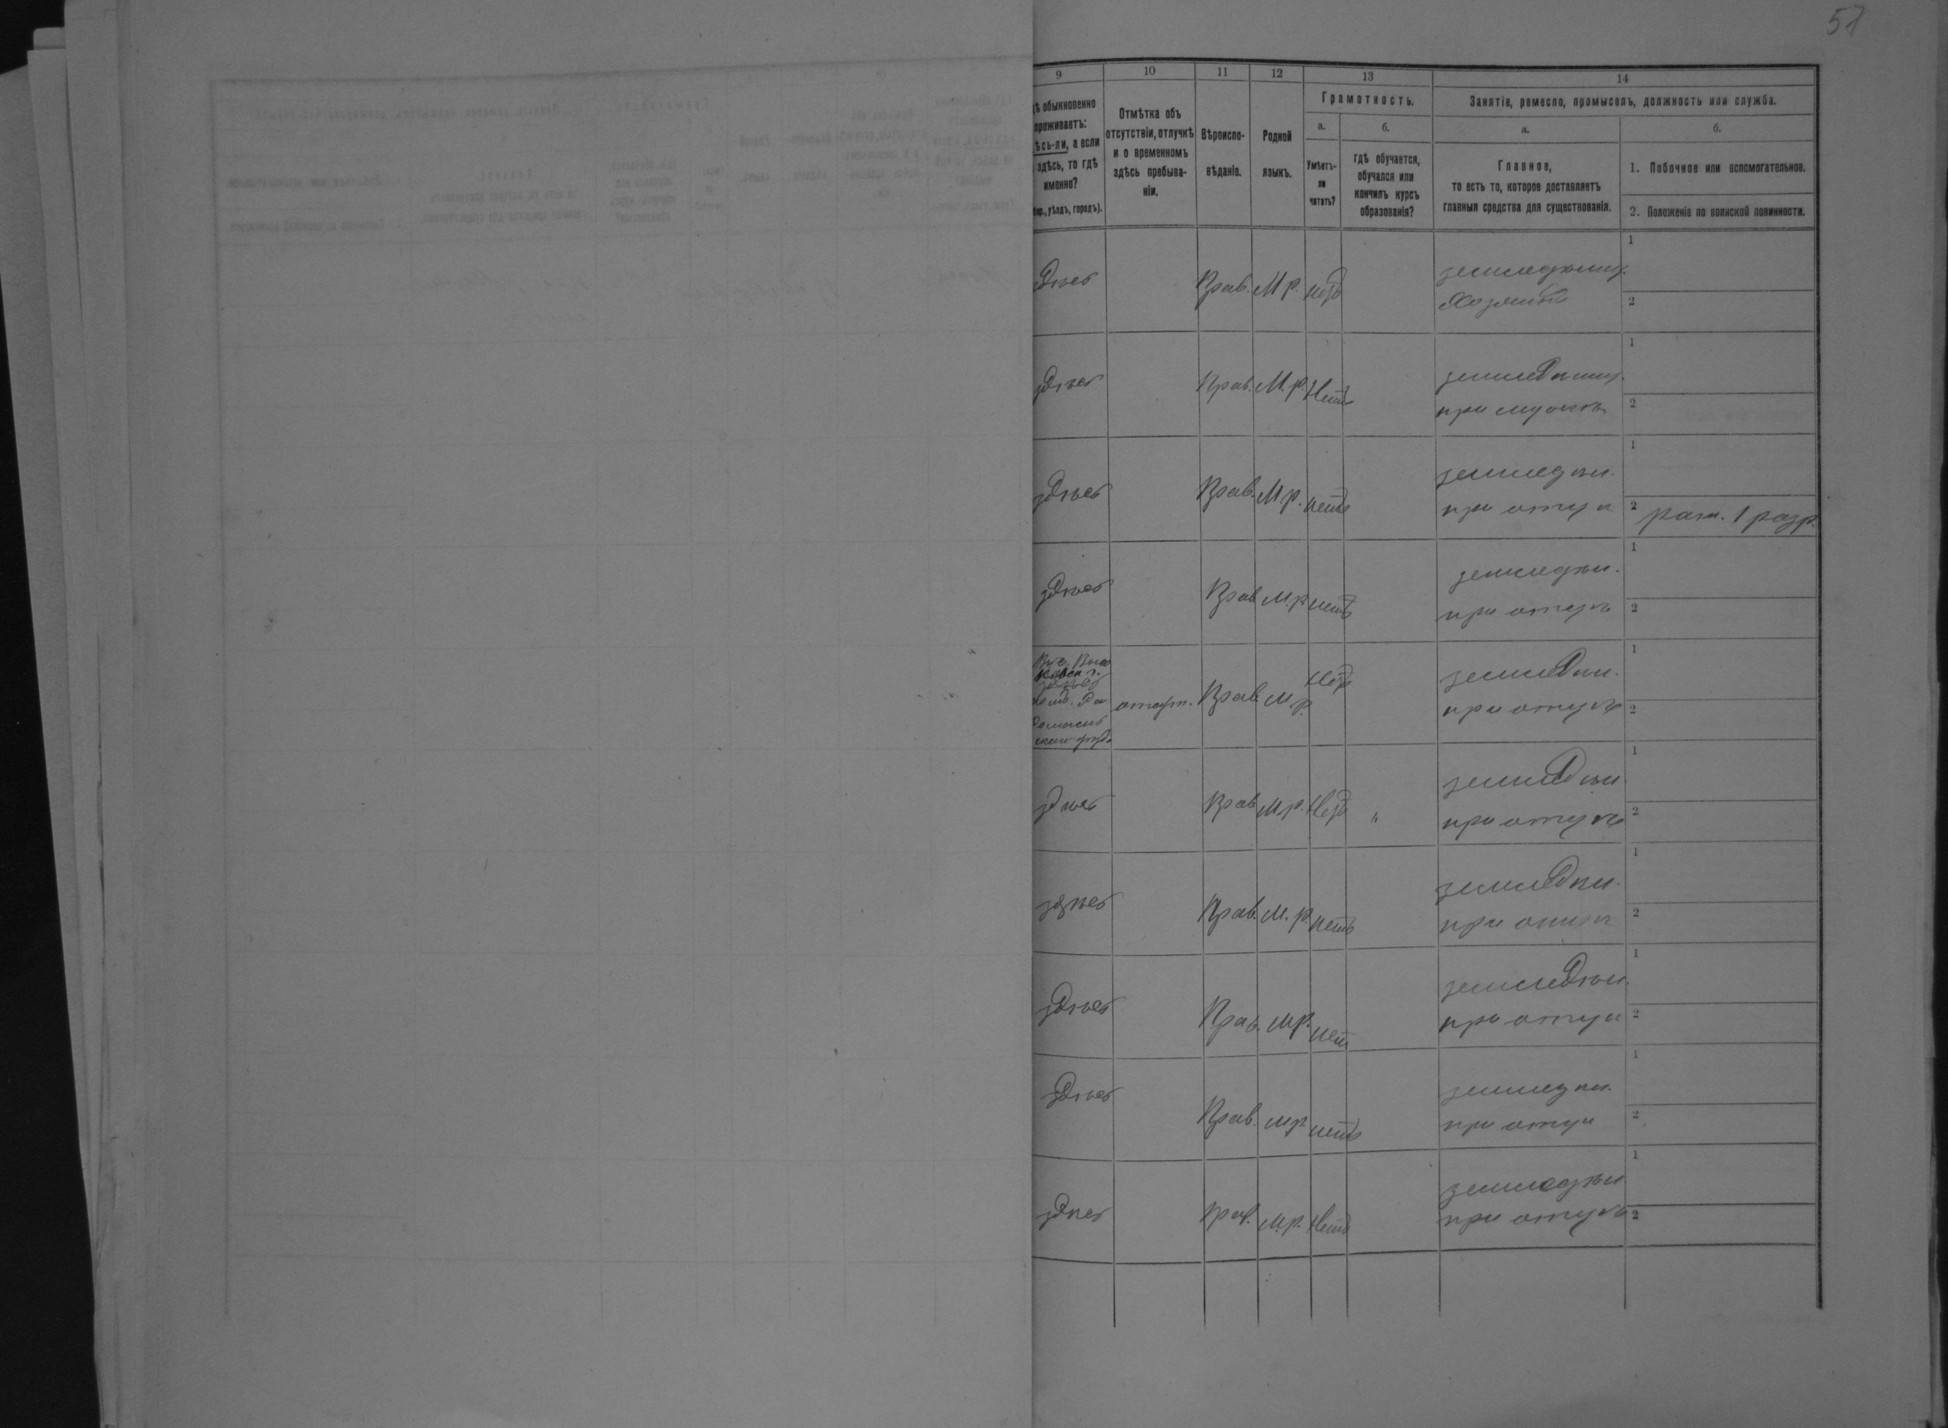 57
9 10 11 12 13 14
обыкновенно
проживаетъ:
здѣсь-ли, а если
здѣсь, то гдѣ
именно?
уѣздъ, городъ).
Отмѣтка объ
отсутствіи, отлучкѣ
и о временномъ
здѣсь пребыва-
ніи.
Вѣроиспо-
вѣданіе.
Родной
языкъ.
Грамотность.
а.
Умѣетъ-
ли
читать?
б.
гдѣ обучается,
обучался или
кончилъ курсъ
образованія?
Занятіе, ремесло, промыселъ, должность или служба.
а.
Главное,
то есть то, которое доставляетъ
главныя средства для существованія.
б.
1. Побочное или вспомогательное.
2. Положеніе по воинской повинности.
здѣсь Прав. М. р. нѣтъ земледѣлец. 1
Хозяинъ 2
здѣсь Прав. М. р. Нетъ земледелец. 1
при мужѣ 2
здѣсь Прав. М. р. нетъ земледѣл. 1
при отцѣ 2 рат. 1 разр.
здѣсь Прав М. р нетъ земледѣл. 1
при отцѣ 2
отсут. Прав М. р. земледел. 1
при отцѣ 2
здѣсь Прав М. р. " земледел 1
при отцѣ 2
здѣсь Прав. М. р. нетъ земледел. 1
при отцѣ 2
здѣсь Прав. М. р. нет земледел. 1
при отцѣ 2
здѣсь Прав. М. р нетъ земледел. 1
при отцѣ 2
здѣсь Прав. М. р. Нетъ земледѣл 1
при отцѣ 2